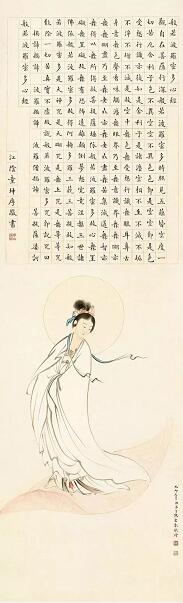 般若波羅蜜多心經
觀自在菩薩行深般若波羅蜜多時照見五蘊皆空度一
切苦厄舍利子色不異空空不異色色即是空空即是色
受想行識亦復如是舍利子是諸法空相不生不滅不垢
不淨不增不減是故空中無色無受想行識無眼耳鼻舌
身意無色聲香味觸法無眼界乃至無意識界無無明亦
無無明盡乃至無老死亦無老死盡無苦集滅道無智亦
無得以無所得故菩提薩埵依般若波羅蜜多故心無罣
礙無罣礙故無有恐怖遠離顛倒夢想究竟涅槃三世諸
佛依般若波羅蜜多故得阿耨多羅三藐三菩提故知般
若波羅蜜多是大神咒是大明咒是無上咒是無等等咒
能除一切苦真實不虛故說般若波羅蜜多咒即說咒曰
揭諦揭諦 波羅揭諦 波羅僧揭諦 菩提薩婆訶
般若波羅蜜多心經
江陰童坤厚敬書